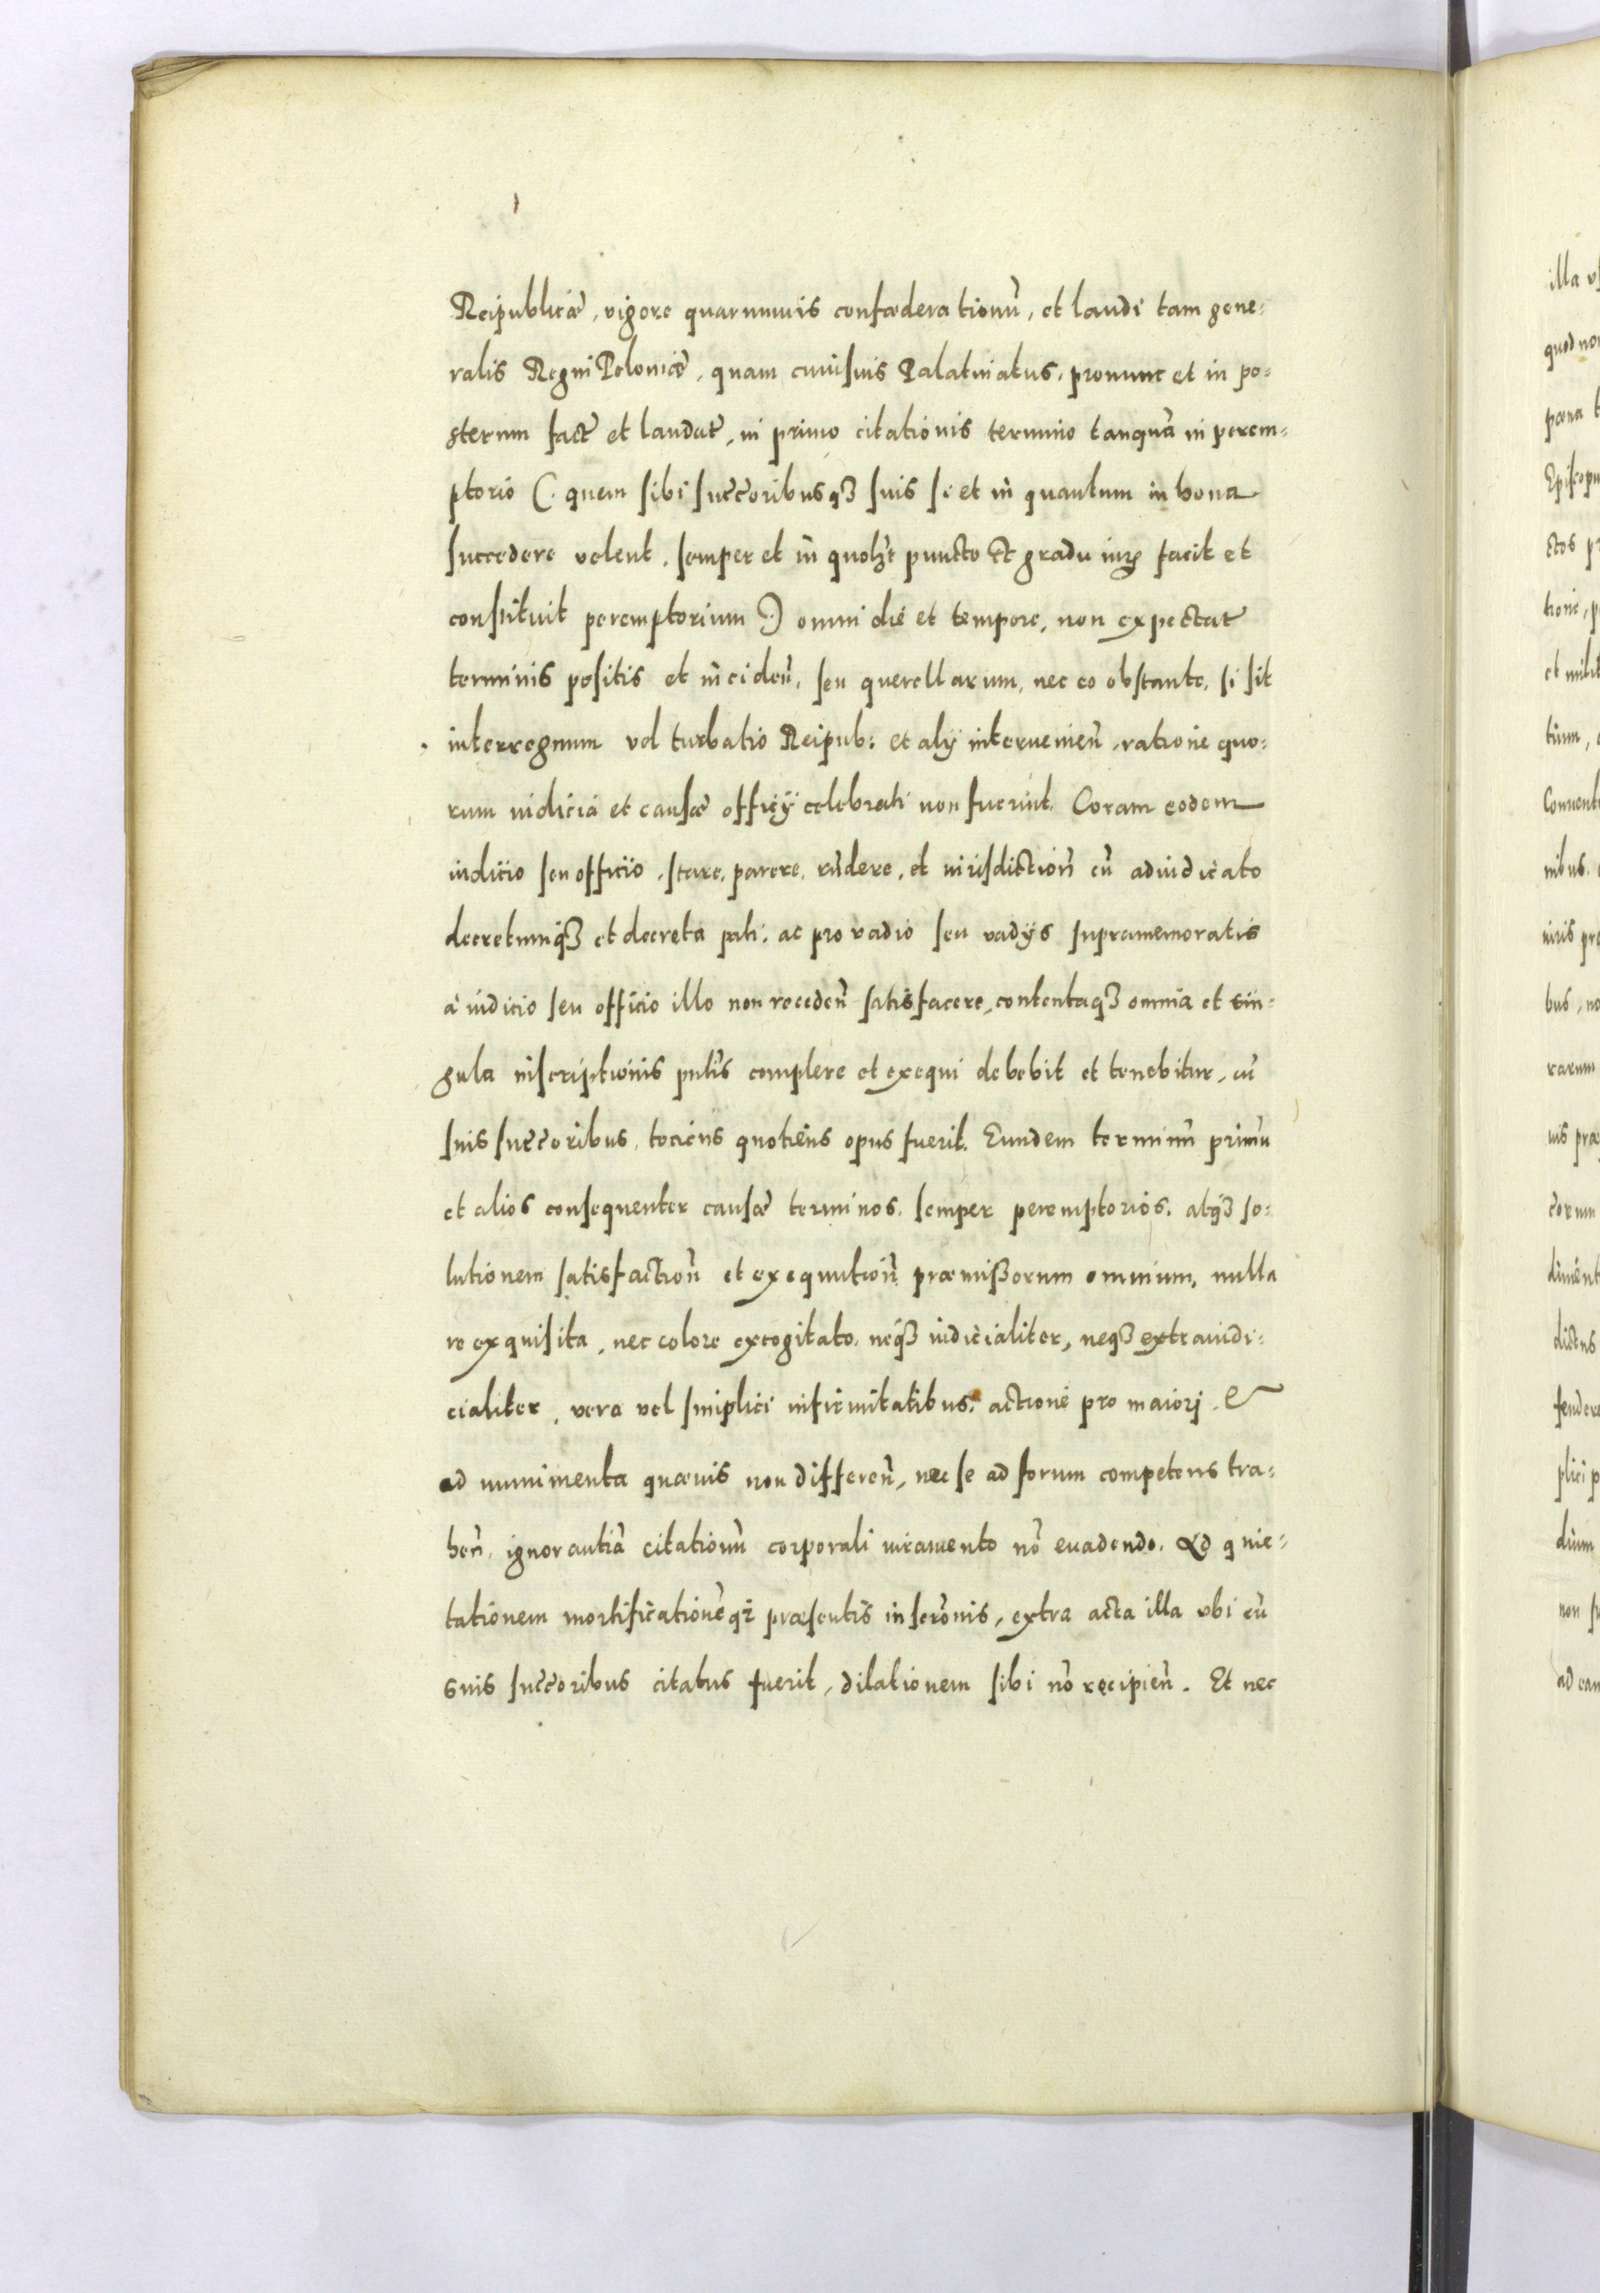 Reipublicæ, vigore quarumuis confœderationũ, et laudi tam gene-
ralis Regni Poloniæ, quam cuiusuis Palatinatus, pronunc et in po-
sterum fact̃ et laudat̃, in primo citationis termino tanquã in perem-
ptorio (. quem sibi succ̃oribusqȝ suis si et in quantum in bona
succedere volent, semper et in quoli̇t puncto et gradu iurꝭ facit et
constituit peremptorium .) omni die et tempore, non expectat̃
terminis positis et inciden̄, seu querellarum, nec eo obstante, si sit
interregnum vel turbatio Reipub: et alÿ interuenien̄, ratione quo-
rum iudicia et causæ officÿ celebrati non fuerint. Coram eodem
iudicio seu officio, stare, parere, rn̄dere, et iurisdiction̄ cũ adiudicato
decretumqȝ et decreta pati, ac pro vadio seu vadÿs supramemoratis
à iudicio seu officio illo non receden̄ satisfacere, contentaqȝ omnia et sin-
gula inscriptionis pn̄tis complere et exequi debebit et tenebitur, cũ
suis succ̃oribus, tociens quotiens opus fuerit. Eundem terminũ primũ
et alios consequenter causæ terminos, semper peremptorios, atqȝ so-
lutionem satisfaction̄ et exequution̄ præmissorum omnium, nulla
re exquisita, nec colore excogitato, neqȝ iudicialiter, neqȝ extraiudi-
cialiter, vera vel simplici infirmitatibus, actione pro maiori, &
ad munimenta quæuis non differen̄, nec se ad forum competens tra-
hen̄, ignorantiã citationũ corporali iuramento nõ euadendo. Ad quie-
tationem mortificationẽqȝ præsentis inscrõnis, extra acta illa vbi cũ
suis succ̃oribus citatus fuerit, dilationem sibi nõ recipien̄. Et nec